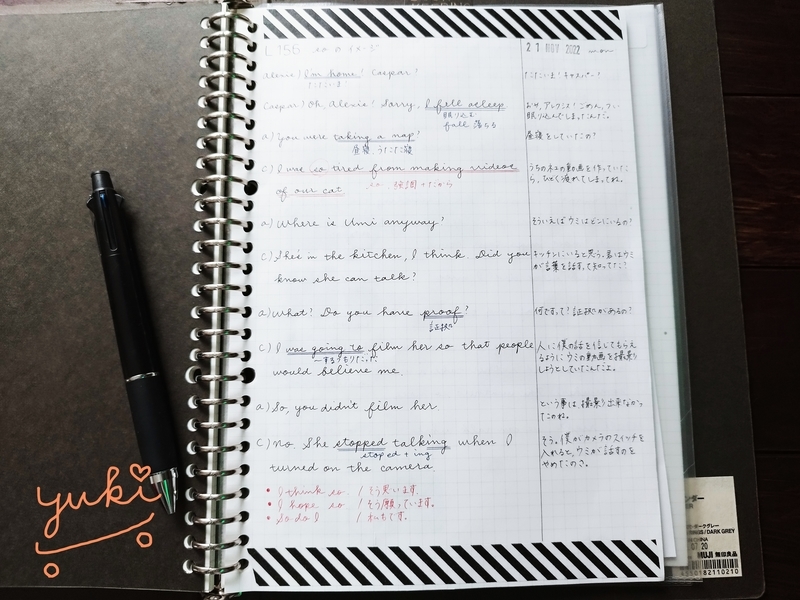 L 156 so a
21 NOV 2022 mon
alexis! I'm home! Caspar!
ただいま!
ただいま!キャスパー!
Caspar! Oh, Alexis! Sorry, I fell asleep
眠り込む
fall 落ちる
おや、アレクシス!ごめん、つい
眠り込んでしまったんだ。
a) You were taking a nap?
昼寝、うたた寝
昼寝をしていたの?
C) I was so tired from making videos
of our cat
so 強調 + だから
うちのネコの動画を作っていた
ら、ひどく疲れてしまってね。
a) Where is Umi anyway?
そういえばウミはどこにいるの?
C) She's in the kitchen, I think. Did you
know she can talk?
キッチンにいると思う。君はウミ
が言葉を話すって知ってた?
a) What! Do you have proof?
証拠
何ですって?証拠があるの?
C) I was going to film her so that people
〜するつもりだった
would believe me.
人に僕の話を信じてもらえ
るようにウミの動画を撮影
しようとしていたんだよ。
a) So, you didn't film her
という事は撮影出来なかっ
たのね。
C) No. She stopped talking when I
stoped + ing
turned on the camera.
そう。僕がカメラのスイッチを
入れると、ウミが話すのを
やめたのさ。
• I think so. / そう思います。
• I hope so / そう願っています。
• So do I / 私もです。
yuki
ンダー
ダークグレー
RINGS / DARK GREY
CHINA
07.20
MUJI 無印良品
4550182110210